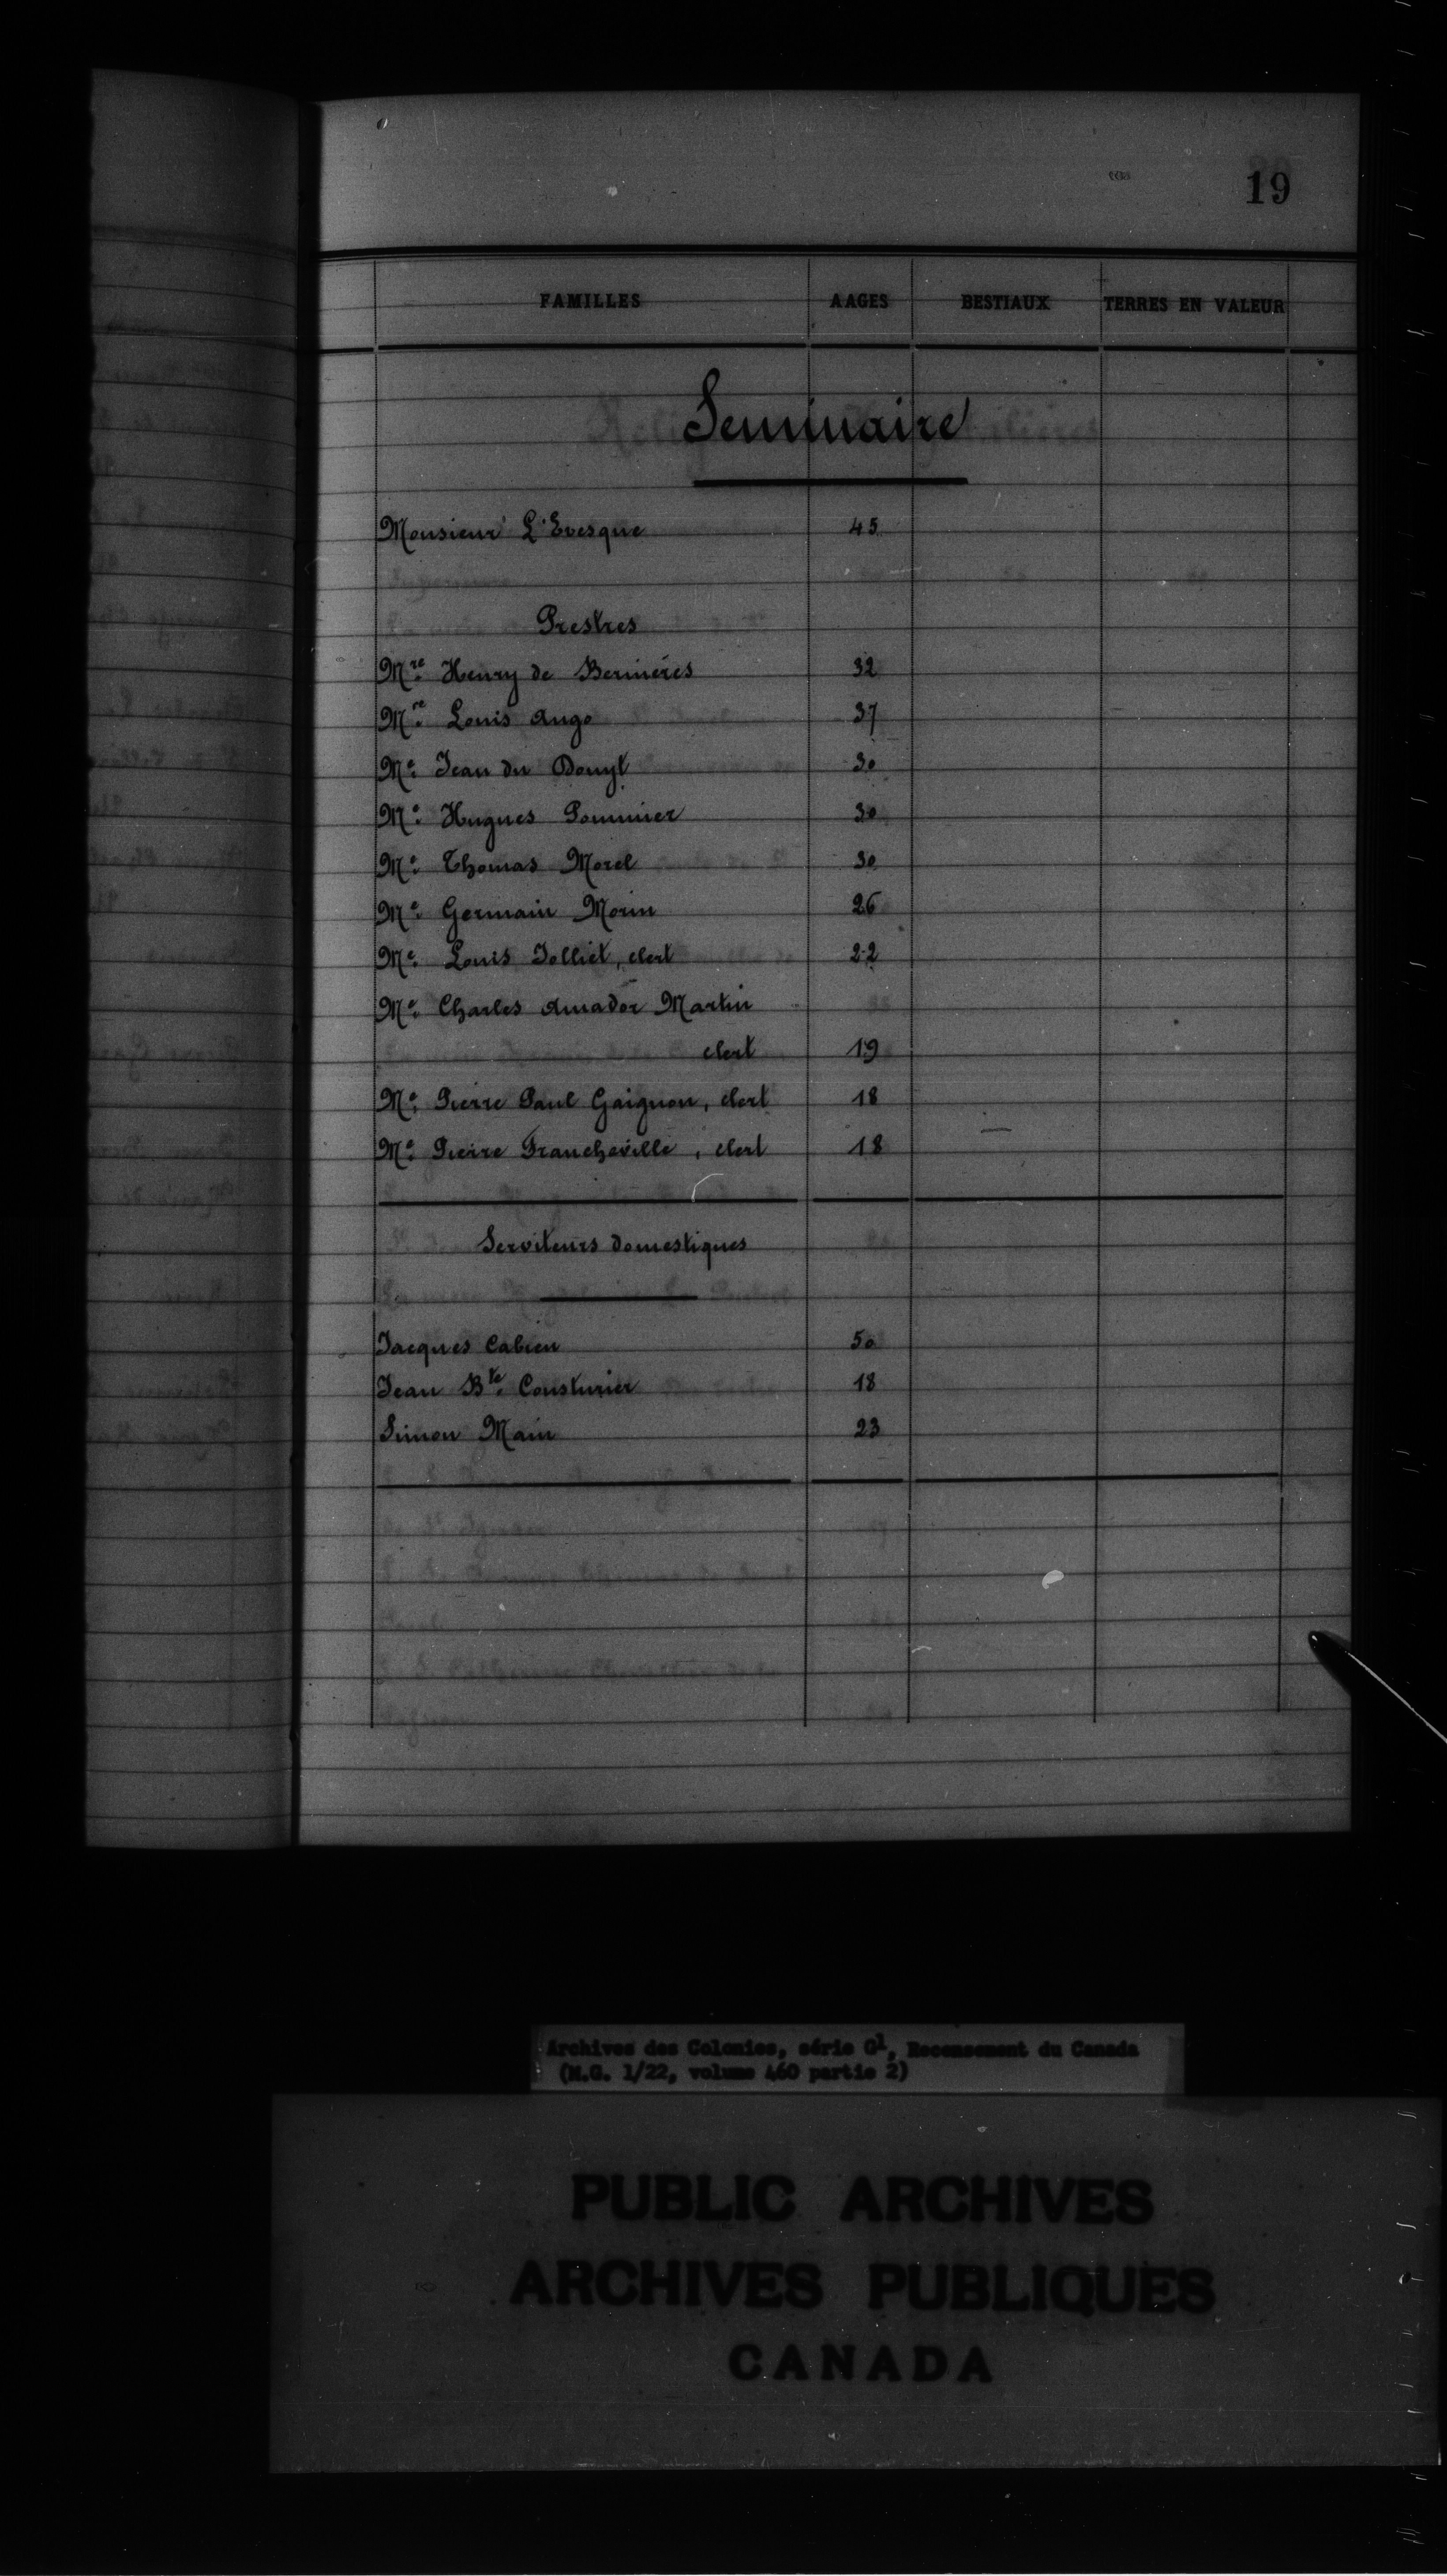 19
FAMILLES AAGES BESTIAUX TERRES EN VALEUR
Seminaire
Monsieur L'Evesque 45
Prestres
Mre Henry de Bernières 32
Mre Louis Ango 37
Me Jean du Douyt 30
Me Hugues Pommier 30
Me Thomas Morel 30
Me Germain Morin 26
Me Louis Jolliet, clert 22
Me Charles Amador Martin
clert 19
Me Pierre Paul Gaignon, clert 18
Me Pierre Francheville, clert 18
Serviteurs domestiques
Jacques Cabien 50
Jean Bte Cousturier 18
Simon Main 23
Archives des Colonies, série G1, Recensement du Canada
(M.G. 1/22, volume 460 partie 2)
PUBLIC ARCHIVES
ARCHIVES PUBLIQUES
CANADA